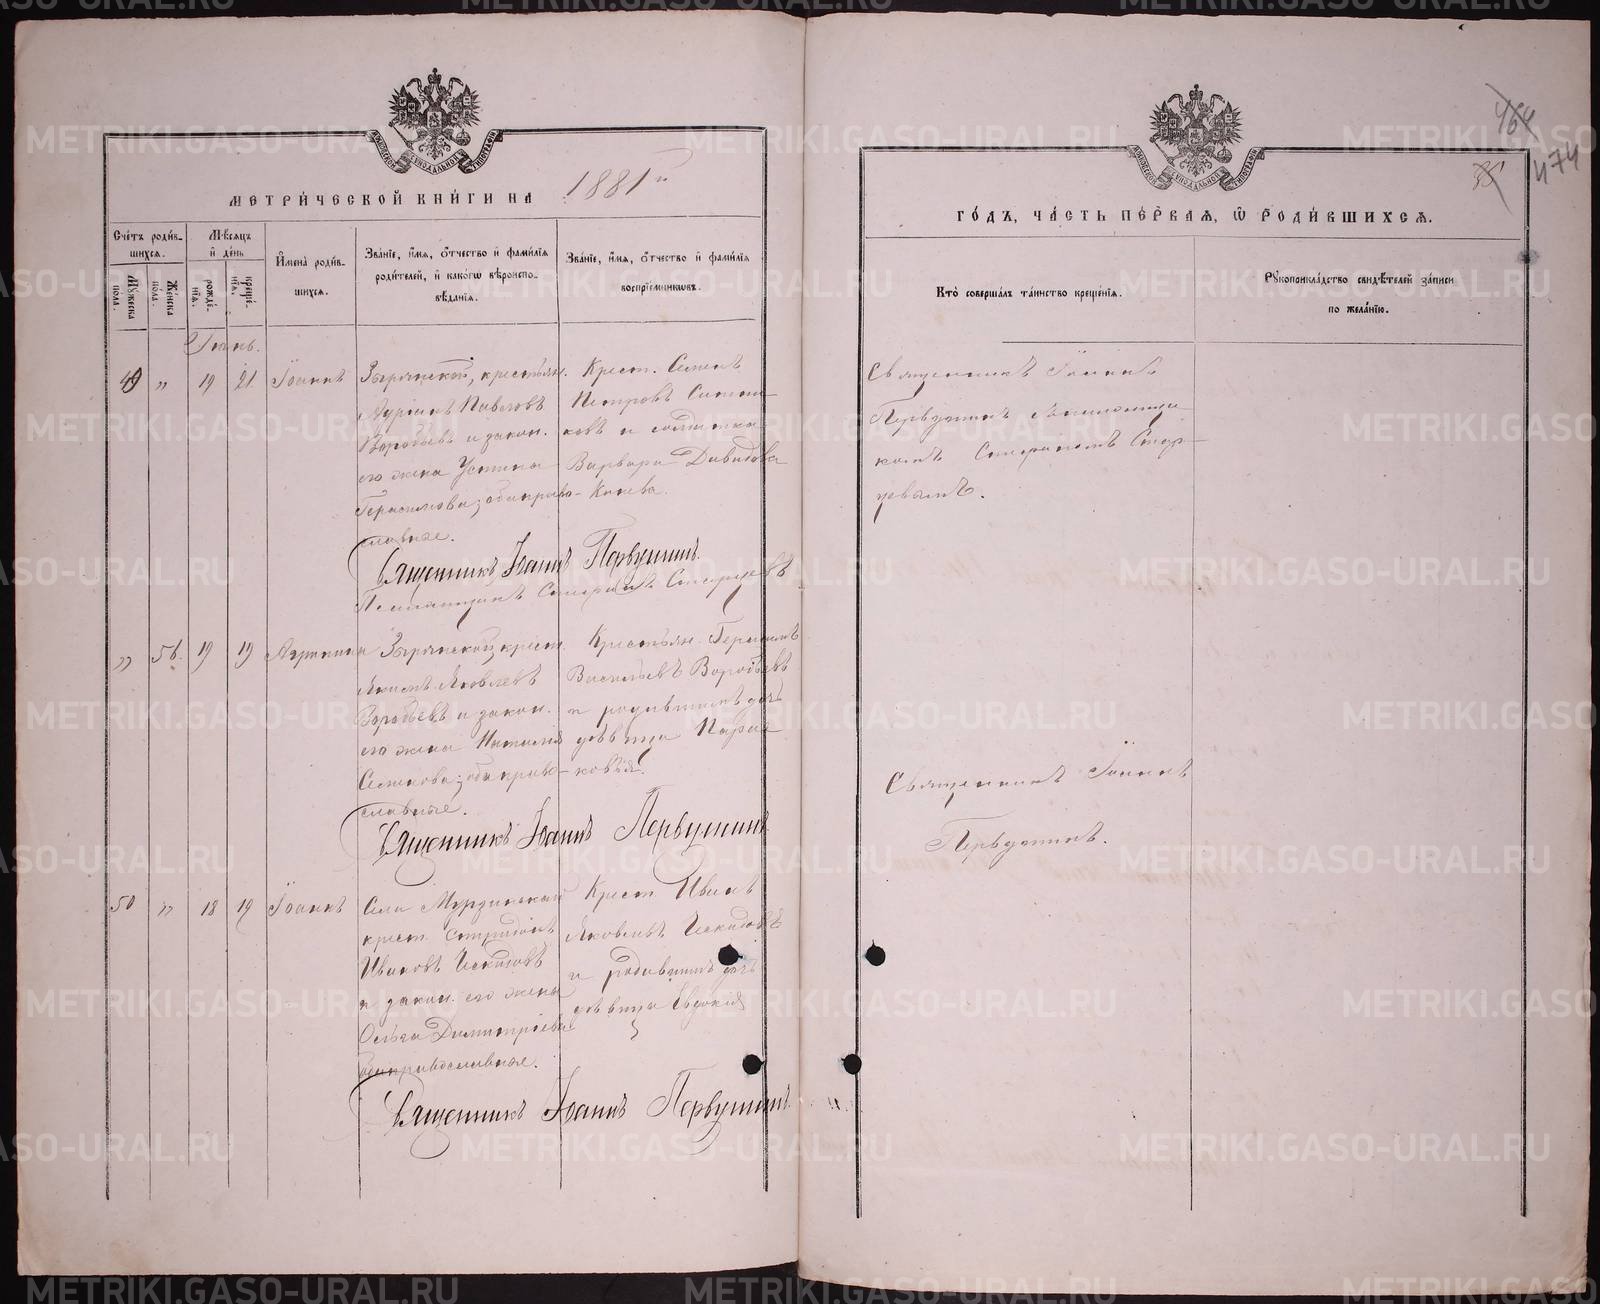 МЕТРИ́ЧЕСКОЙ КНИ́ГИ НА 1881й
Счётъ роди́вшихся.
Мѣ́сяцъ и҆ де́нь
Мꙋ́жеска по́ла.
Же́нска по́ла.
рожде́нїѧ.
креще́нїѧ.
И҆мена̀ роди́вшихся.
Зва́нїе, и҆́мя, ѻ҆́тчество и҆ фами́лїя
роди́телей, и҆ како́гѡ вѣроиспо-
вѣ́данїя.
Зва́нїе, и҆́мя, ѻ҆́тчество и҆ фами́лїя
воспрїе́мникѡвъ.
Іюнь.
49 " 19 21. Іоаннъ
Зырянской, крестьян.
Адріанъ Павловъ
Воробьевъ и закон.
его жена Устина
Герасимова; оба право-
славные.
Крест. Семенъ
Петровъ
и солдатка
Варвара Давидова
Канева.
Священникъ Іоаннъ Первушинъ.
Псаломщикъ Старцевъ
" 56. 19 19 Агрипина
Зырянской, крест.
Якимъ Яковлевъ
Воробьевъ и закон.
его жена Наталія
Семенова; оба право-
славные.
Крестьян. Герасимъ
Васильевъ Воробьевъ
и родившимъ дочь
дѣвица Парас-
ковія.
Священникъ Іоаннъ Первушинъ
50 " 18 19 Іоаннъ
Села Мурзинскаго
крест. Спиридонъ
Ивановъ
и закон. его жена
Ольга Димитріева
оба православные.
Крест. Иванъ
Яковлевъ
и родившимъ дочь
дѣвица Евдокія
Священникъ Іоаннъ Первушинъ.
464
474
ГО́ДЪ, ЧА́СТЬ ПЕ́РВАЯ, Ѡ҆ РОДИ́ВШИХСЯ.
Кто̀ соверша́лъ та́инство креще́нїя.
Рꙋкоприкла́дство свидѣ́телей за́писи
по жела́нїю.
Священникъ Іоаннъ
Первушинъ съ псаломщи-
комъ Стар-
цевымъ.
Священникъ Іоаннъ
Первушинъ.
METRIKI.GASO-URAL.RU